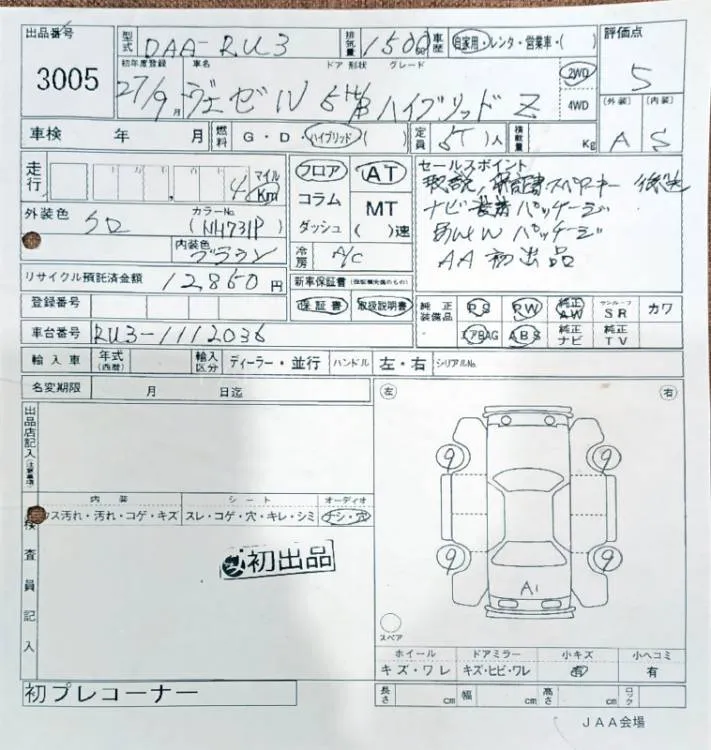 出品番号 3005
型式 DAA-RU3 排気量 1500 車歴 自家用・レンタ・営業車・( ) 評価点 5
初年度登録 27/9月 車名 ヴェゼルV ドア 形状 5 グレード ハイブリッド Z 2WD 4WD
(外装) A (内装) S
車検 年 月 燃料 G・D・ハイブリッド( ) 定員 5 人 積載量 Kg
走行 4 マイル Km
外装色 カラーNo. (NH731P)
内装色 ブラウン
リサイクル預託済金額 12860円
登録番号
車台番号 RU3-1112036
フロア コラム ダッシュ
AT MT ( )速
冷房 A/C
新車保証書
保証書 取扱説明書
セールスポイント
取説, スペアキー
ナビ装着パッケージ
あんしんパッケージ
AA初出品
純正装備品 PS PW 純正AW サンルーフ SR カワ
エアBAG ABS 純正ナビ 純正TV
輸入車 年式(西暦) 輸入区分 ディーラー・並行 ハンドル 左・右 シリアルNo.
名変期限 月 日迄
左 右
出品店記入(注意事項)
内装 シート オーディオ
ス汚れ・汚れ・コゲ・キズ スレ・コゲ・穴・キレ・シミ ナシ・穴
検査員記入
初出品
9 9
9 9
A1
スペア
ホイール ドアミラー 小キズ 小ヘコミ
キズ・ワレ キズ・ヒビ・ワレ 有 有
初プレコーナー
長さ cm 幅 cm 高さ cm ロック
JAA会場